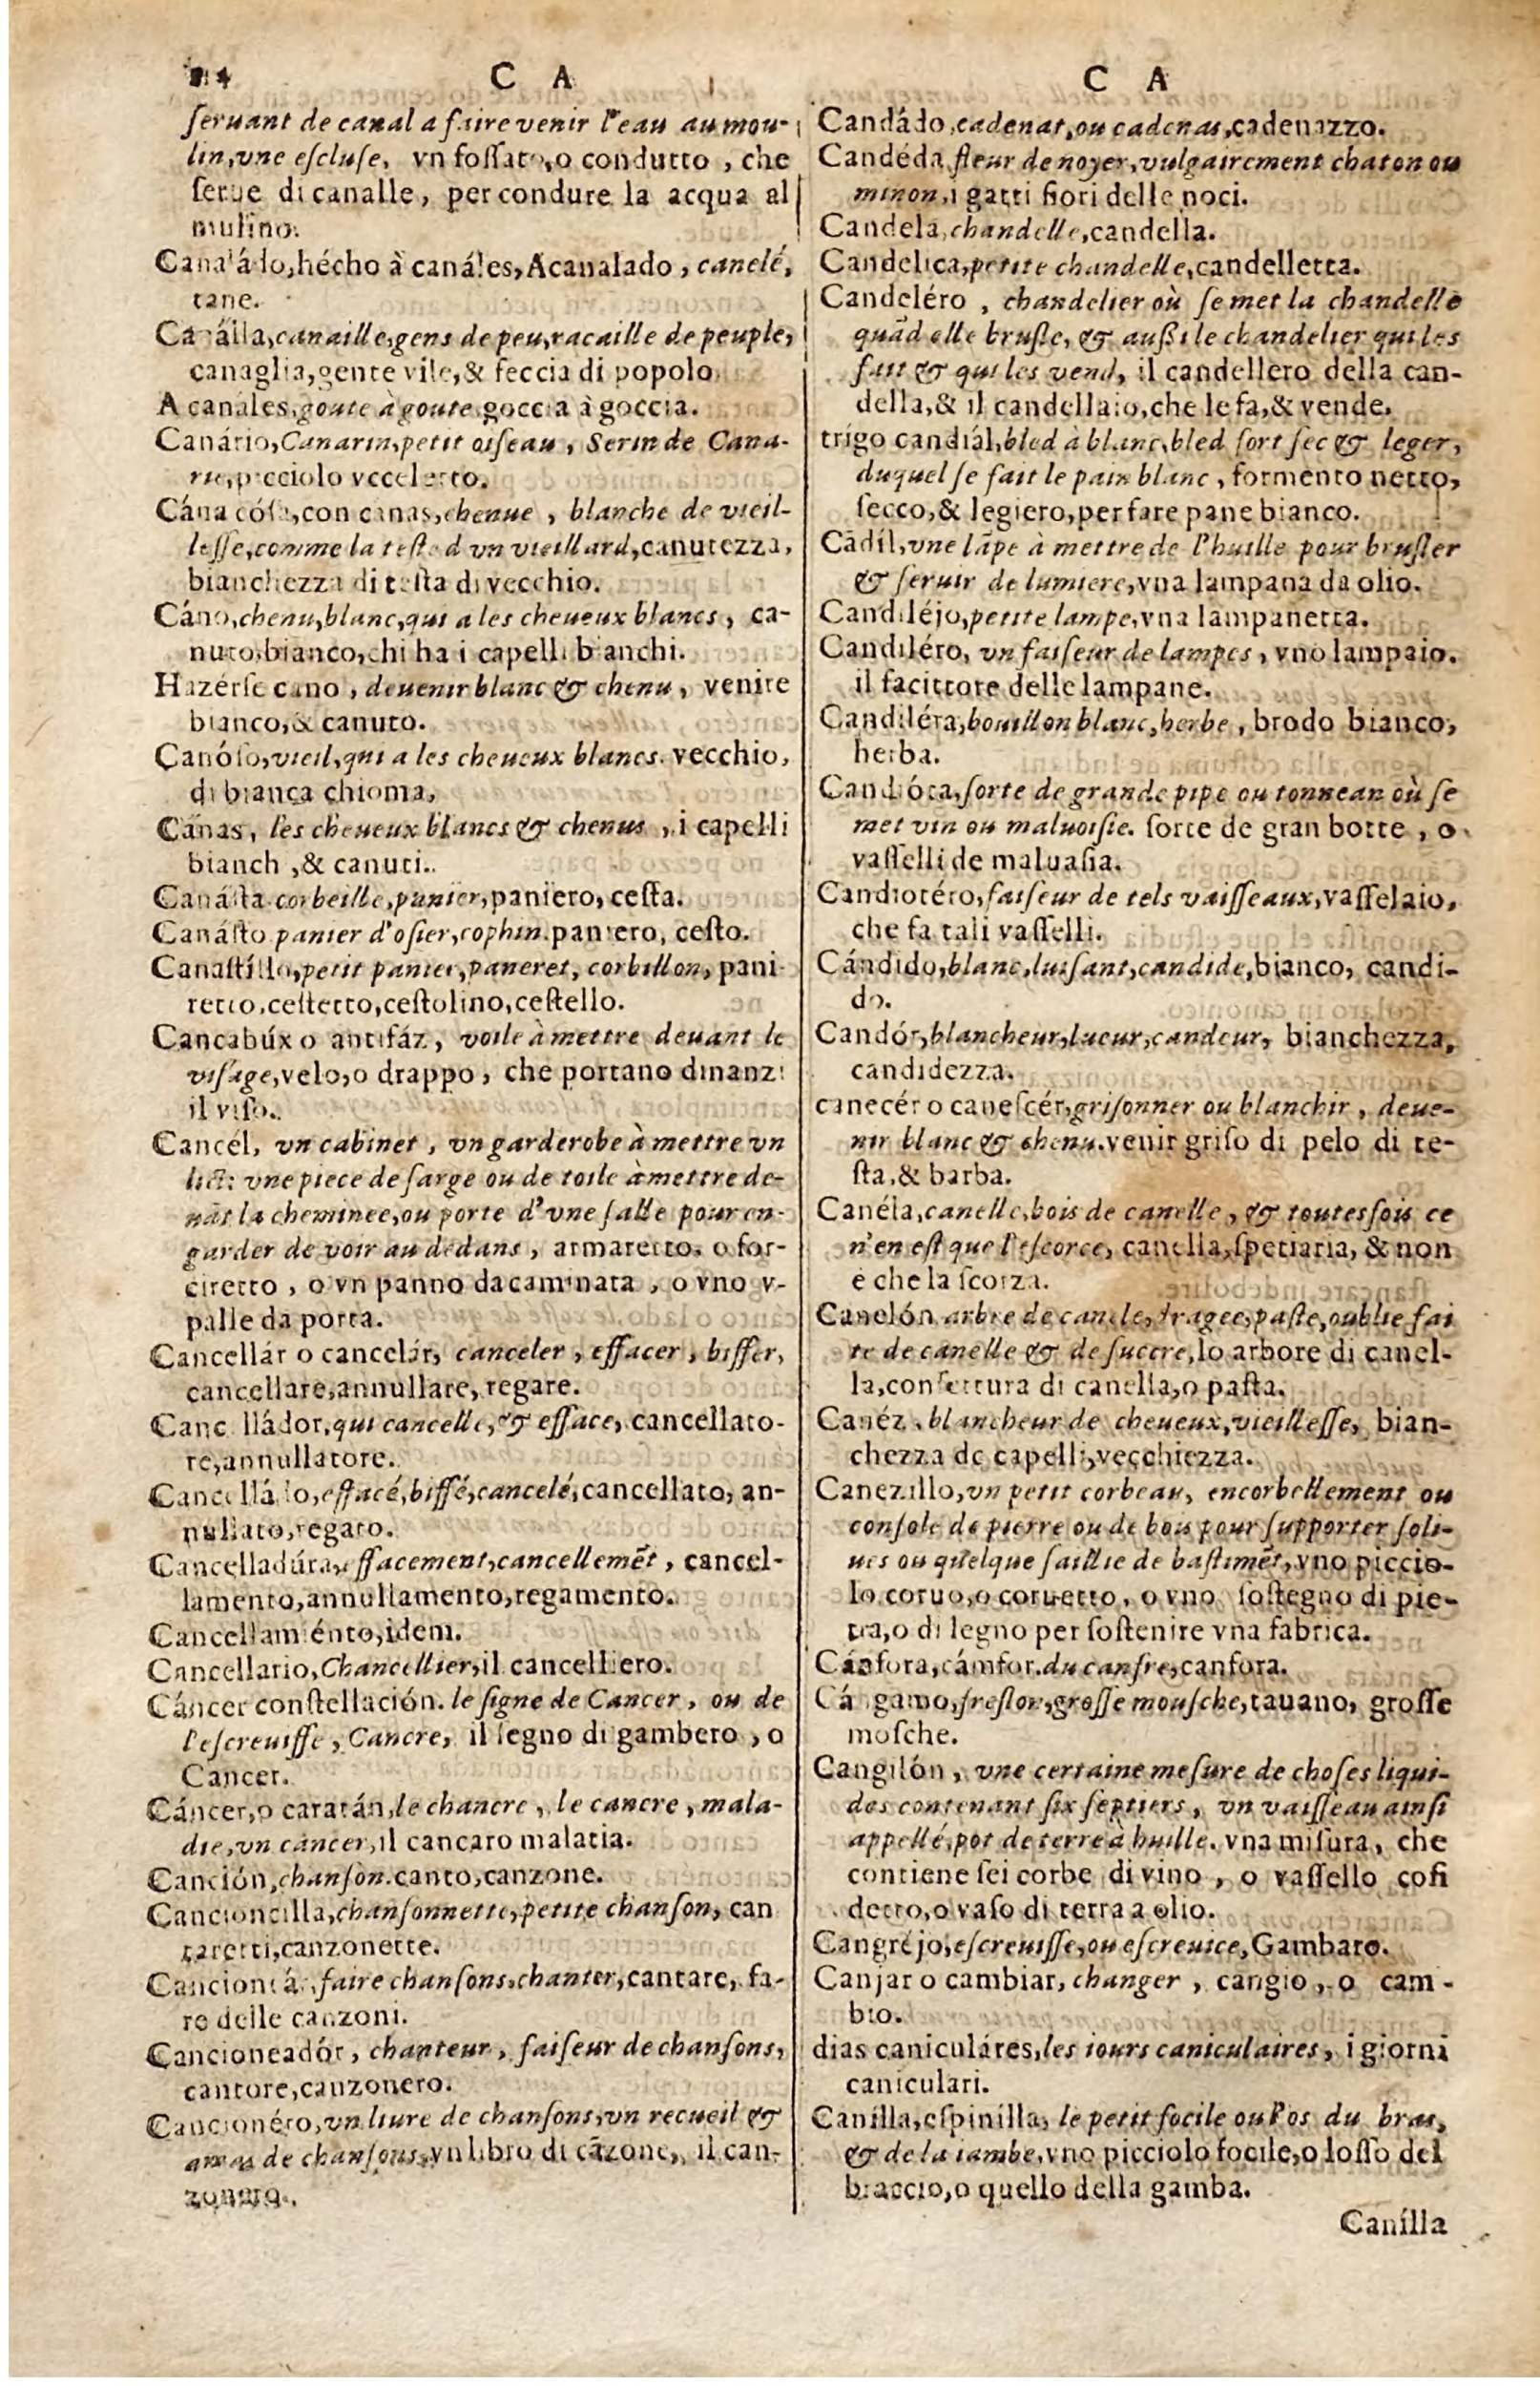 C A
ſeruant de canal a faire venir l'eau au mou-
lin, vne eſcluſe, vn foſſato, o condutto, che
ſerue di canalle, per condure la acqua al
mulino.
Canaládo, hécho à canáles, Acanalado, canelé,
tane.
Canálla, canaille, gens de peu, racaille de peuple,
canaglia, gente vile, & feccia di popolo
A canáles, goute à goute, goccia à goccia.
Canário, Canarin, petit oiſeau, Serin de Cana-
rie, picciolo vccelletto.
Cána cóſa, con canas, chenue, blanche de vieil-
leſſe, comme la teſte d'vn vieillard, canutezza,
bianchezza di teſta di vecchio.
Cáno, chenu, blanc, qui a les cheueux blancs, ca-
nuto, bianco, chi ha i capelli bianchi.
Hazérſe cano, deuenir blanc & chenu, venire
bianco, & canuto.
Canóſo, vieil, qui a les cheueux blancs. vecchio,
di bianca chioma,
Cánas, les cheueux blancs & chenus, i capelli
bianch, & canuti.
Canáſta corbeille, panier, paniero, ceſta.
Canáſto panier d'oſier, cophin. paniero, ceſto.
Canaſtíllo, petit panier, paneret, corbillon, pani
retto, ceſtetto, ceſtolino, ceſtello.
Cancabúx o antifáz, voile à mettre deuant le
viſage, velo, o drappo, che portano dinanzi
il viſo.
Cancél, vn cabinet, vn garderobe à mettre vn
lict: vne piece de ſarge ou de toile à mettre de-
nāt la cheminee, ou porte d'vne ſalle pour en-
garder de voir au dedans, armaretto, o for-
ciretto, o vn panno da caminata, o vno v-
palle da porta.
Cancellár o cancelár, canceler, effacer, biffer,
cancellare, annullare, regare.
Canc lládor, qui cancelle, & efface, cancellato-
re, annullatore.
Cancelládo, effacé, biffé, cancelé, cancellato, an-
nullato, regato.
Cancelladúra, effacement, cancellemēt, cancel-
lamento, annullamento, regamento.
Cancellamiénto, idem.
Cancellario, Chancellier, il cancelliero.
Cáncer conſtellación. le ſigne de Cancer, ou de
l'eſcreuiſſe, Cancre, il ſegno di gambero, o
Cancer.
Cáncer, o caratán, le chancre, le cancre, mala-
die, vn cancer, il cancaro malatia.
Canción, chanſon. canto, canzone.
Cancioncilla, chanſonnette, petite chanſon, can
taretti, canzonette.
Cancioneár, faire chanſons, chanter, cantare, fa-
re delle canzoni.
Cancioneadór, chanteur, faiſeur de chanſons,
cantore, canzonero.
Cancionéro, vn liure de chanſons, vn recueil &
amas de chanſons, vn libro di cāzone, il can-
zonero.
C A
Candádo, cadenat, ou cadenas, cadenazzo.
Candéda, fleur de noyer, vulgairement chaton ou
minon, i gatti fiori delle noci.
Candela, chandelle, candella.
Candelica, petite chandelle, candelletta.
Candeléro, chandelier où ſe met la chandelle
quād elle bruſle, & auſſi le chandelier qui les
fait & qui les vend, il candellero della can-
della, & il candellaio, che le fa, & vende.
trígo candiál, bled à blanc, bled fort ſec & leger,
duquel ſe fait le pain blanc, formento netto,
ſecco, & legiero, per fare pane bianco.
Cādíl, vne lāpe à mettre de l'huille pour bruſler
& ſeruir de lumiere, vna lampana da olio.
Candiléjo, petite lampe, vna lampanetta.
Candiléro, vn faiſeur de lampes, vno lampaio.
il facittore delle lampane.
Candiléra, bouillon blanc, herbe, brodo bianco,
herba.
Candióta, ſorte de grande pipe ou tonneau où ſe
met vin ou maluoiſie. ſorte de gran botte, o
vaſſelli de maluaſia.
Candiotéro, faiſeur de tels vaiſſeaux, vaſſelaio,
che fa tali vaſſelli.
Cándido, blanc, luiſant, candide, bianco, candi-
do.
Candór, blancheur, lueur, candeur, bianchezza,
candidezza.
canecér o caneſcér, griſonner ou blanchir, deue-
nir blanc & chenu. venir griſo di pelo di te-
ſta, & barba.
Canéla, canelle, bois de canelle, & toutesfois ce
n'en eſt que l'eſcorce, canella, ſpetiaria, & non
e che la ſcorza.
Canelón arbre de canele, dragee, paſte, oublie fai
te de canelle & de ſuccre, lo arbore di canel-
la, confettura di canella, o paſta.
Canéz, blancheur de cheueux, vieilleſſe, bian-
chezza de capelli, vecchiezza.
Canezillo, vn petit corbeau, encorbellement ou
conſole de pierre ou de bois pour ſupporter ſoli-
ues ou quelque ſaillie de baſtimēt, vno piccio-
lo coruo, o coruetto, o vno ſoſtegno di pie-
tra, o di legno per ſoſtenire vna fabrica.
Cánfora, cámfor. du canfre, canfora.
Cá gamo, freſlon, groſſe mouſche, tauano, groſſe
moſche.
Cangilón, vne certaine meſure de choſes liqui-
des contenant ſix ſeptiers, vn vaiſſeau ainſi
appellé, pot de terre à huille. vna miſura, che
contiene ſei corbe di vino, o vaſſello coſi
detto, o vaſo di terra a olio.
Cangréjo, eſcreuiſſe, ou eſcreuice, Gambaro.
Canjar o cambiar, changer, cangio, o cam-
bio.
dias caniculáres, les iours caniculaires, i giorni
caniculari.
Canílla, eſpinilla, le petit focile ou l'os du bras,
& de la iambe, vno picciolo focile, o loſſo del
braccio, o quello della gamba.
Canílla